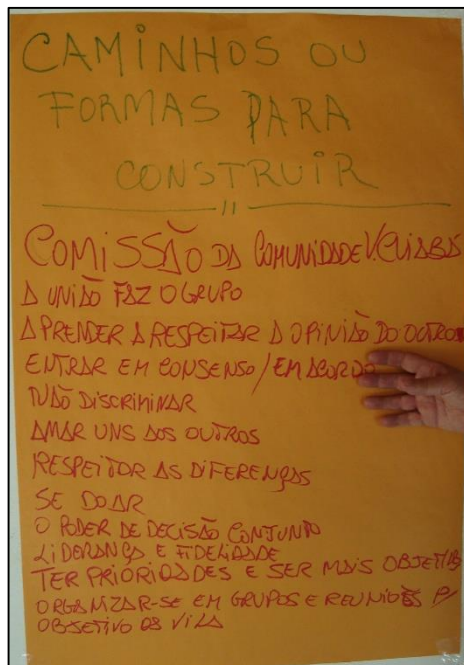 CAMINHOS OU
FORMAS PARA
CONSTRUIR
"
COMISSÃO DA COMUNIDADE V. CUIABÁ
A UNIÃO FAZ O GRUPO
APRENDER A RESPEITAR A OPINIÃO DO OUTRO
ENTRAR EM CONSENSO / EM ACORDO
NÃO DISCRIMINAR
AMAR UNS AOS OUTROS
RESPEITAR AS DIFERENÇAS
SE DOAR
O PODER DE DECISÃO CONJUNTO
LIDERANÇA E FIDELIDADE
TER PRIORIDADES E SER MAIS OBJETIVO
ORGANIZAR-SE EM GRUPOS E REUNIÕES P/
OBJETIVO DA VILA